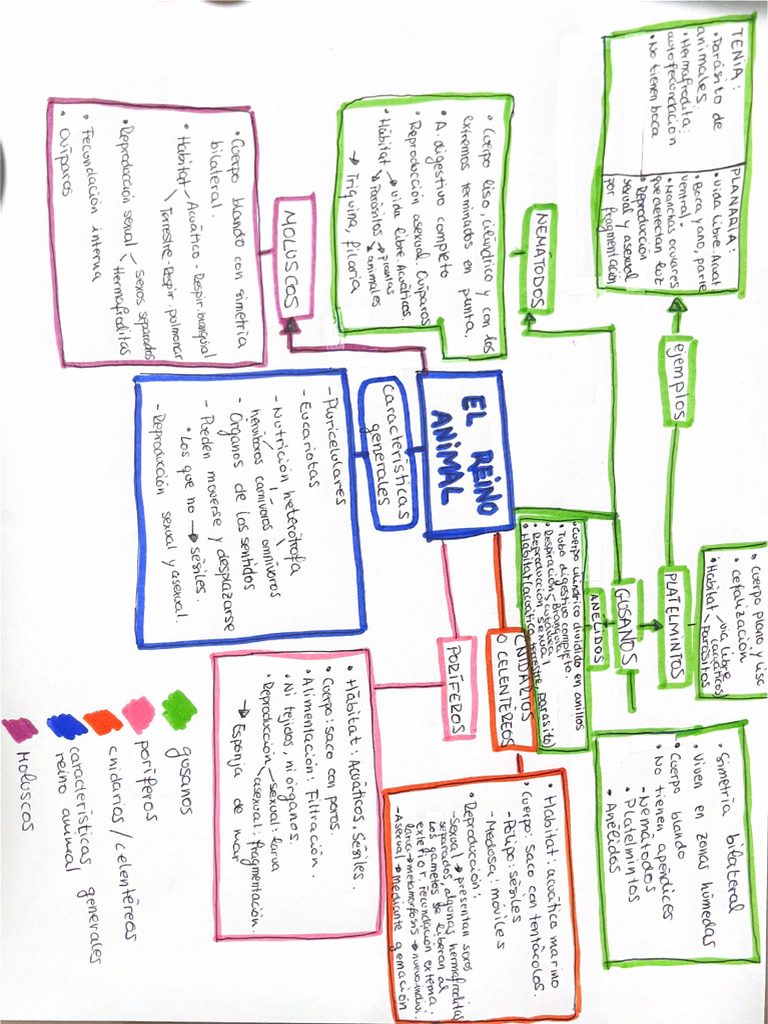 EL REINO
ANIMAL
Características
generales
- Pluricelulares
- Eucariotas
- Nutrición heterótrofa
herviboros carnívoros omnívoros
- Órganos de los sentidos
- Pueden moverse y desplazarse
• Los que no → sésiles.
- Reproducción sexual y asexual.
MOLUSCOS
• Cuerpo blando con simetría
bilateral.
• Habitat - Acuático - Despir. branquial
Terrestre - Respir. pulmonar
• Reproducción sexual - sexos separados
Hermafroditas
• Fecundación interna
• Ovíparos
NEMÁTODOS
• Cuerpo liso, cilíndrico y con los
extremos terminados en punta.
• A. digestivo completo
• Reproducción asexual, Ovíparos
• Hábitat → vida libre. Acuáticos
Parásitos → plantas
animales
→ Triquina, filaria
TENIA:
• Parásito de
animales.
• Hermafrodita:
autofecundación
• No tienen boca
PLANARIA:
• Vida libre. Acuat
• Boca y ano, parte
ventral.
• Manchas oculares
que detectan luz
• Reproducción
sexual y asexual
por fragmentación
ejemplos
PLATELMINTOS
• Cuerpo plano y liso
• cefalización
• Hábitat - via libre
acuáticos
parásitos
GUSANOS
ANÉLIDOS
• Cuerpo cilíndrico dividido en anillos
• Tubo digestivo completo.
• Respiración cutánea
Branquial
• Reproducción sexual
• Hábitat (acuático, terrestre, parásito)
• Simetría bilateral
• Viven en zonas húmedas
• Cuerpo blando
• No tienen apéndices
- Nemátodos
• Platelmintos
• Anélidos
CNIDARIOS
O CELENTÉREOS
• Habitat: acuático marino
• Cuerpo: Saco con tentáculos.
- Pólipo: sésiles
- Medosa: móviles
• Reproducción:
- Sexual → presentan sexos
separados algunas hermafroditas
Los gametos se liberan al
exterior. Fecundación externa.
larva → metamorfosis → nuevo indivi.
- Asexual → mediante gemación
PORÍFEROS
• Hábitat: Acuáticos, Sésiles.
• Cuerpo: saco con poros.
• Alimentación: Filtración.
• Ni tejidos, ni órganos
• Reproducción - sexual: larva
asexual: fragmentación.
→ Esponja de mar
gusanos
poríferos
cnidarios/celentéreos
características generales
reino animal
Moluscos